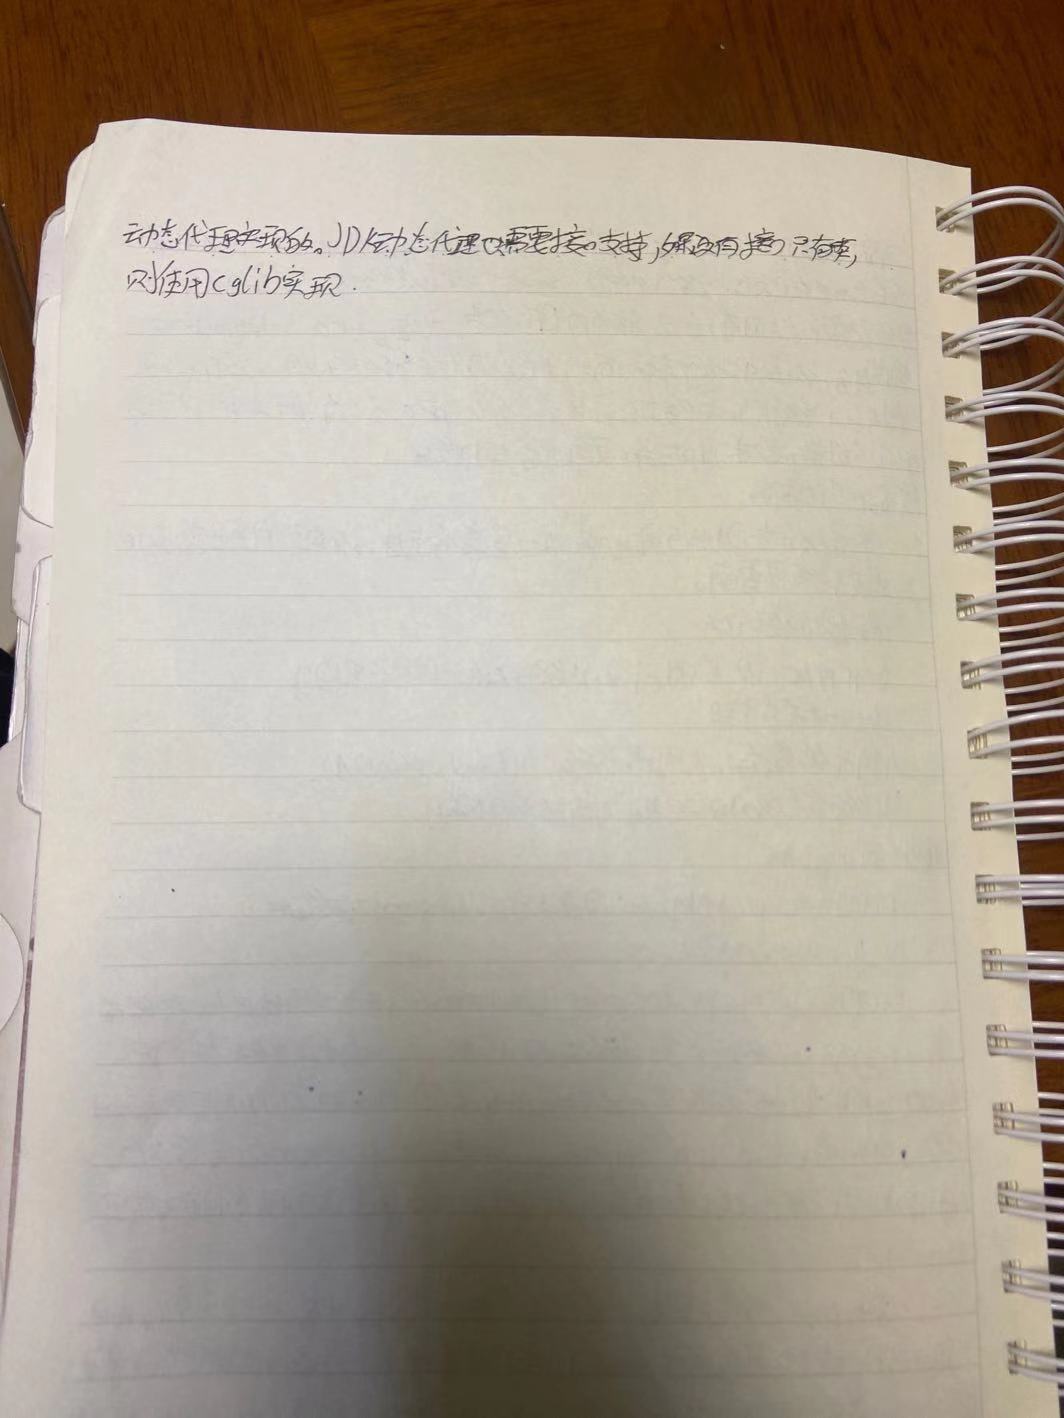 动态代理实现的。JDK动态代理只需要接口支持,如果没有接口只有类,
则使用cglib实现.